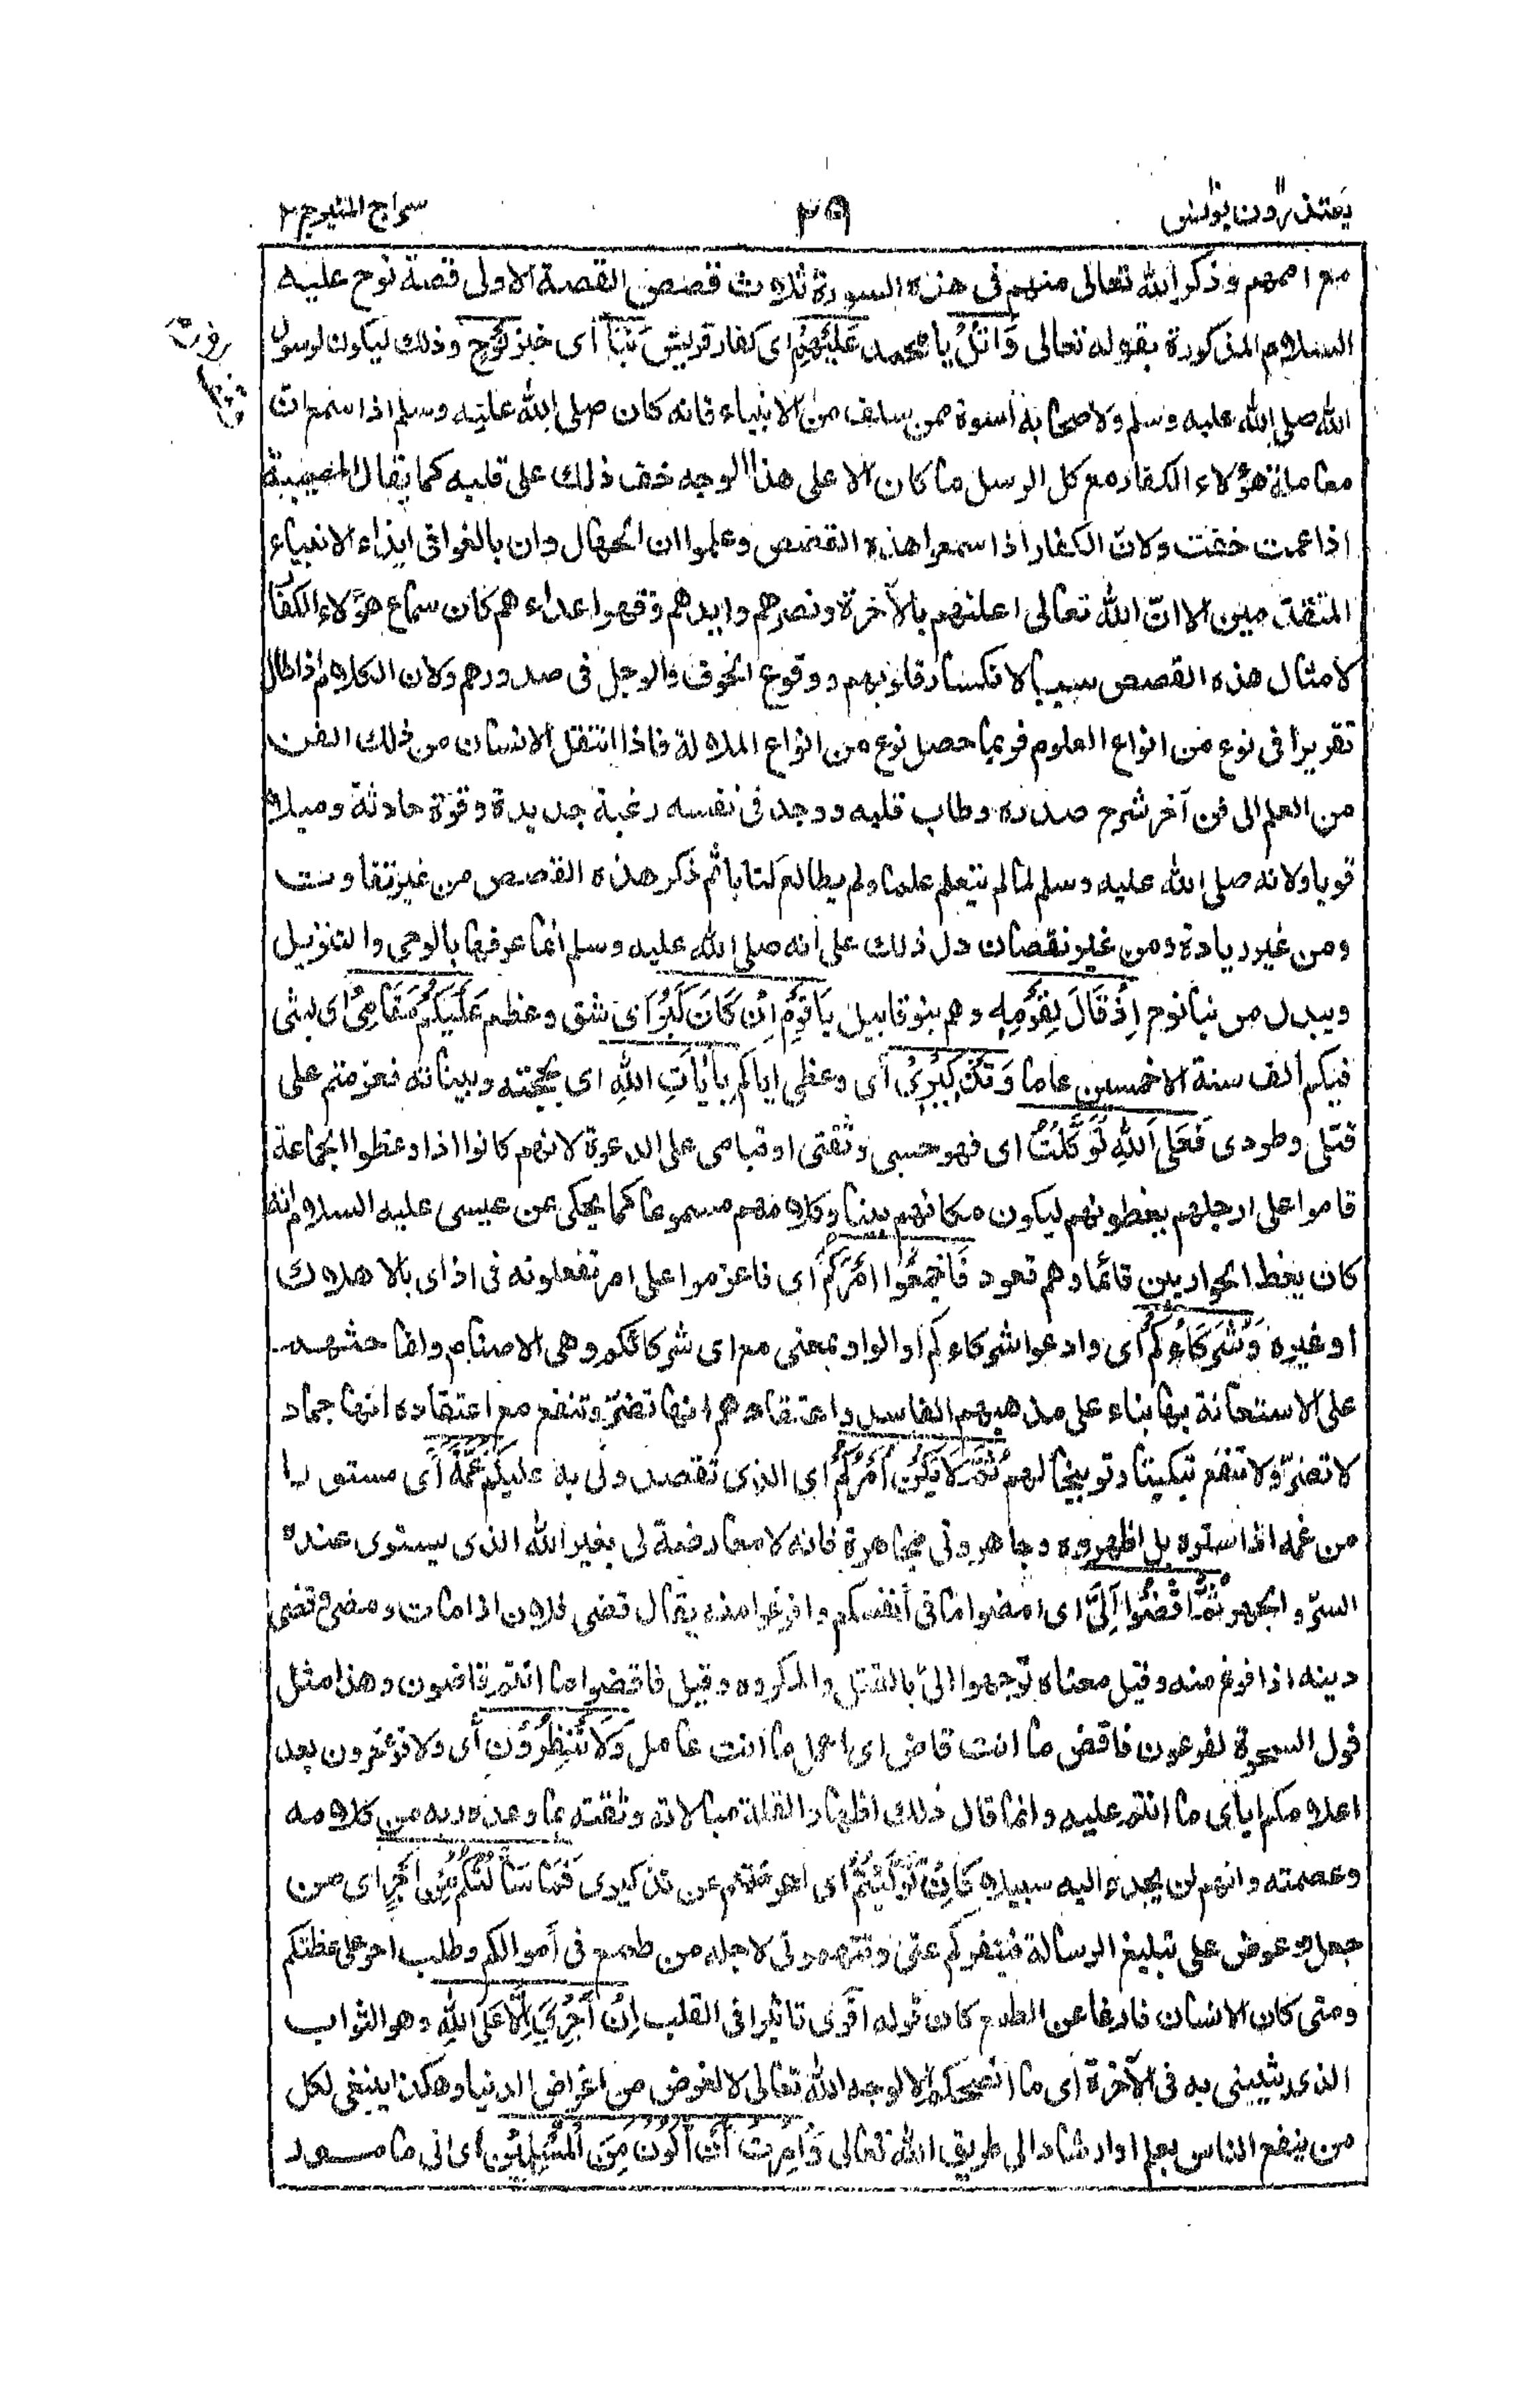 يعتذرون يونس
٣٩
سراج المنير ج ٢
مع اممهم وذكر الله تعالى منهم فى هذه السورة ثلاث قصص القصة الاولى قصة نوح عليه
السلام المذكورة بقوله تعالى وَاتْلُ يا محمد عَلَيْهِمْ اى كفار قريش نَبَأَ اى خبر نُوْحٍ وذلك ليكون لرسول
الله صلى الله عليه وسلم ولاصحابه أسوة ممن سلف من الانبياء فانه كان صلى الله عليه وسلم اذا سمع ان
معاملة هؤلاء الكفار مع كل الرسل ما كان الا على هذا الوجه خف ذلك على قلبه كما يقال المصيبة
اذا عمت خفت ولانّ الكفار اذا سمعوا هذه القصص وعلموا ان الجهال وان بالغوا فى ايذاء الانبياء
المتقدمين الا انّ الله تعالى اعانهم بالآخرة ونصرهم وايدهم وقهر اعداءهم كان سماع هؤلاء الكفا
لامثال هذه القصص سببا لانكسار قلوبهم ووقوع الخوف والوجل فى صدورهم ولان الكلام اذا طال
تقريرا فى نوع من انواع العلوم فربما حصل نوع من انواع الملالة فاذا انتقل الانسان من ذلك الفن
من العلم الى فن آخر شرح صدره وطاب قلبه ووجد فى نفسه رغبة جديدة وقوة حادثة وميلا
قويا ولانه صلى الله عليه وسلم لما لم يتعلم علما ولم يطالع كتابا ثم ذكر هذه القصص من غير تفاوت
ومن غير زيادة ومن غير نقصان دل ذلك على أنه صلى الله عليه وسلم انما عرفها بالوحى والتنزيل
ويبدل من نبأ نوح اِذْ قَالَ لِقَوْمِهِ وهم بنو قابيل يَا قَوْمِ اِنْ كَانَ كَبُرَ اى شق وعظم عَلَيْكُمْ مَقَامِىْ اى لبثى
فيكم ألف سنة الا خمسين عاما وَتَذْكِيْرِىْ أى وعظى اياكم بِآيَاتِ اللّٰهِ اى بحججه وبيناته فعزمتم على
قتلى وطردى فَعَلَى اللّٰهِ تَوَكَّلْتُ اى فهو حسبى وثقتى او قيامى على الدعوة لانهم كانوا اذا وعظوا الجماعة
قاموا على ارجلهم يعظونهم ليكون مكانهم بينا وكلامهم مسموعا كما يحكى عن عيسى عليه السلام انه
كان يعظ الحواريين قائما وهم قعود فَاَجْمِعُوْا اَمْرَكُمْ اى فاعزموا على امر تفعلونه فى اذاى بالاهلاك
او غيره وَشُرَكَاءَكُمْ أى وادعوا شركاءكم أو الواو بمعنى مع اى شركائكم وهى الاصنام وانما حثهم
على الاستعانة بها بناء على مذهبهم الفاسد واعتقادهم انها تضرّ وتنفع مع اعتقاده انها جماد
لا تضرّ ولا تنفع تبكيتا وتوبيخا لهم ثُمَّ لَا يَكُنْ اَمْرُكُمْ اى الذى تقصدونى به عَلَيْكُمْ غُمَّةً أى مستورا
من غمه اذا ستره بل اظهروه وجاهرونى مجاهرة فانه لا معارضة لى بغير الله الذى يستوى عنده
السرّ والجهر ثُمَّ اقْضُوْا اِلَىَّ اى امضوا ما فى أنفسكم وافرغوا منه يقال قضى فلان اذا مات ومضى وقضى
دينه اذا فرغ منه وقيل معناه توجهوا الىّ بالقتل والمكروه وقيل فاقضوا ما انتم قاضون وهذا مثل
قول السحرة لفرعون فاقض ما انت قاض اى اعمل ما انت عامل وَلَا تُنْظِرُوْنِ أى ولا تؤخرون بعد
اعلامكم اياى ما انتم عليه وانما قال ذلك اظهارا لقلة مبالاته وثقته بما وعده ربه من كلامه
وعصمته وانهم لن يجدوا اليه سبيلا فَاِنْ تَوَلَّيْتُمْ اى اعرضتم عن تذكيرى فَمَا سَاَلْتُكُمْ مِّنْ اَجْرٍ اى من
جعل وعوض على تبليغ الرسالة فينفركم عنى وتتهمونى لاجله من طمع فى أموالكم وطلب اجر على عظتكم
ومتى كان الانسان فارغا عن الطمع كان قوله اقوى تاثيرا فى القلب اِنْ اَجْرِىَ اِلَّا عَلَى اللّٰهِ وهو الثواب
الذى يثيبنى به فى الآخرة أى ما انصحكم الا لوجه الله تعالى لا لغرض من اغراض الدنيا وهكذا ينبغى لكل
من ينفع الناس بعلم او ارشاد الى طريق الله تعالى وَاُمِرْتُ اَنْ اَكُوْنَ مِنَ الْمُسْلِمِيْنَ اى انى مامور